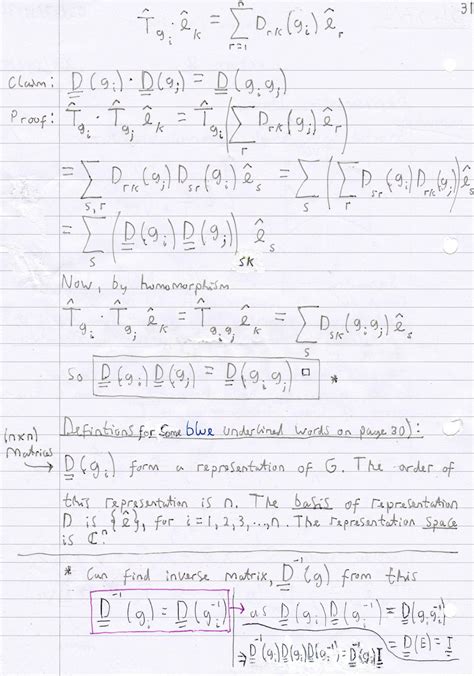 31
T̂_{g_i} · ê_k = Σ_{r=1}^{n} D_{rk}(g_i) ê_r
Claim: D(g_i) · D(g_j) = D(g_i g_j)
Proof: T̂_{g_i} · T̂_{g_j} ê_k = T̂_{g_i}(Σ_r D_{rk}(g_j) ê_r)
= Σ_{s,r} D_{rk}(g_j) D_{sr}(g_i) ê_s = Σ_s (Σ_r D_{sr}(g_i) D_{rk}(g_j)) ê_s
= Σ_s (D(g_i) D(g_j))_{sk} ê_s
Now, by homomorphism
T̂_{g_i} · T̂_{g_j} ê_k = T̂_{g_i g_j} ê_k = Σ_s D_{sk}(g_i g_j) ê_s
So D(g_i) D(g_j) = D(g_i g_j) □ *
Defintions for some blue underlined words on page 30):
(n×n) Matrices → D(g_i) form a representation of G. The order of
this representation is n. The basis of representation
D is {ê_i}, for i = 1, 2, 3, ..., n. The representation space
is ℂⁿ.
* Can find inverse matrix, D⁻¹(g) from this
D⁻¹(g_i) = D(g_i⁻¹) → as D(g_i) D(g_i⁻¹) = D(g_i g_i⁻¹)
= D(E) = I
⇒ D⁻¹(g_i) D(g_i) D(g_i⁻¹) = D⁻¹(g_i) I